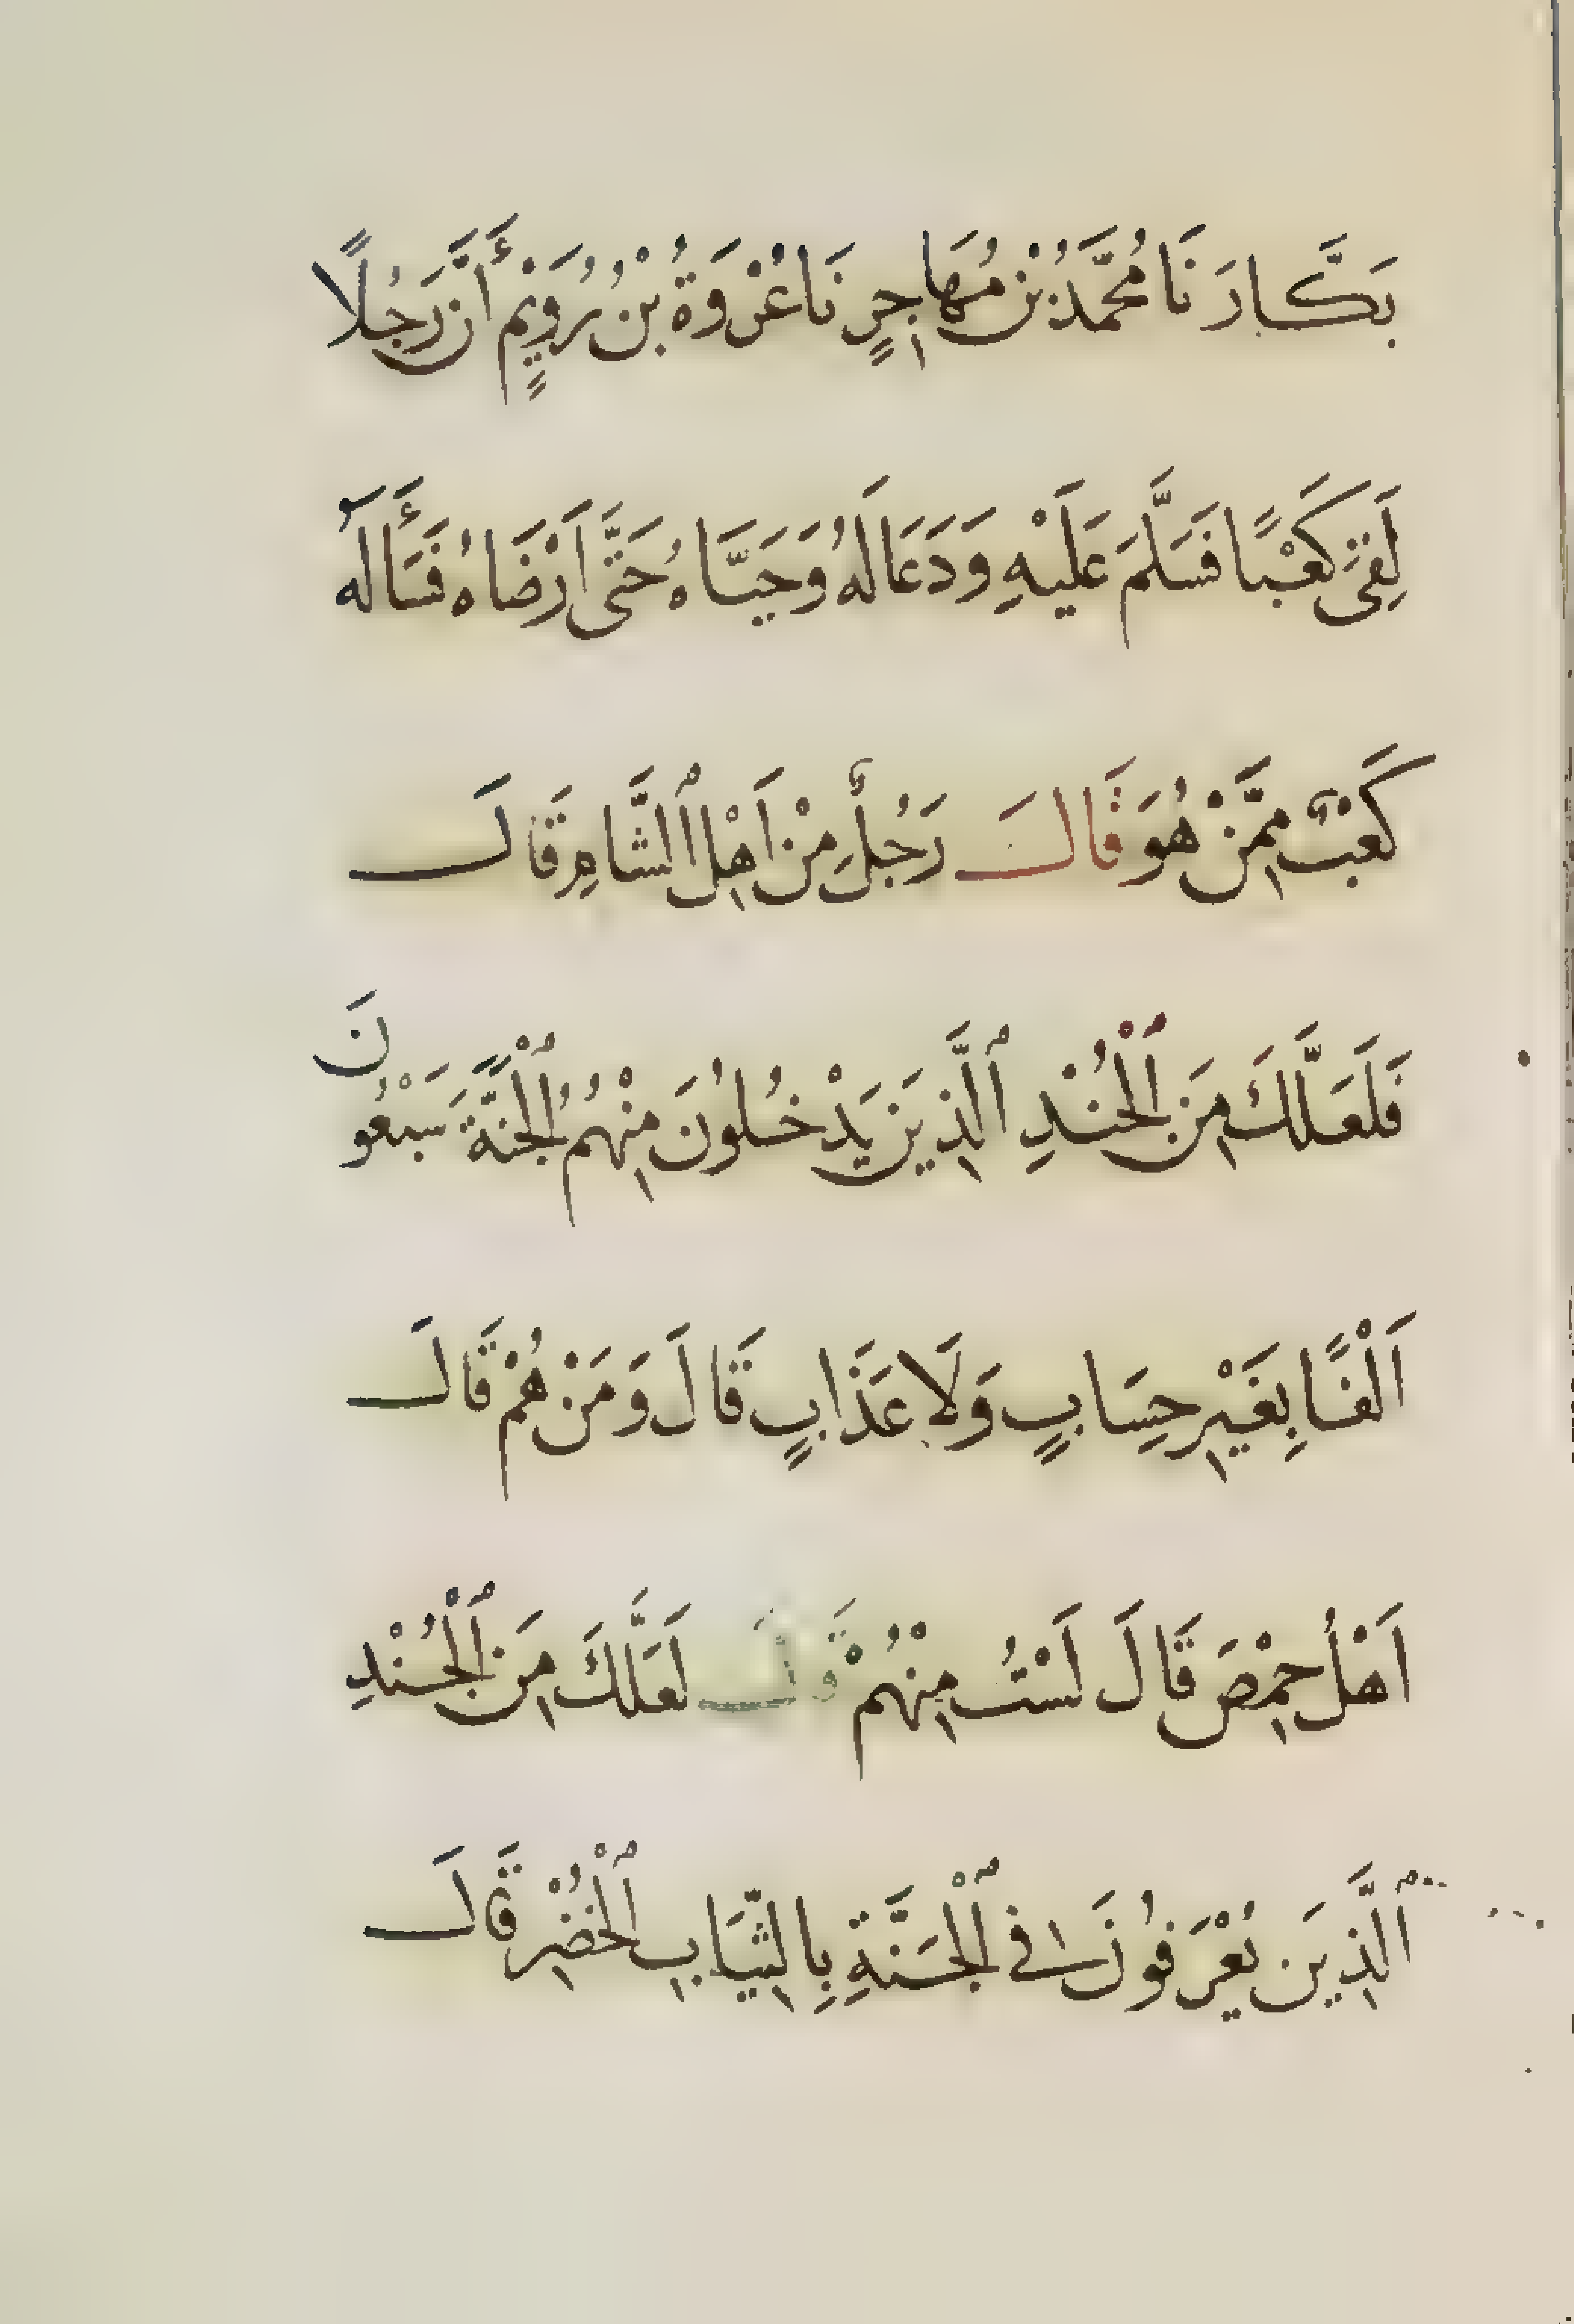 بَكَّارَ نَا مُحَمَّدُ بْنُ مُهَاجِرٍ نَا عُرْوَةُ بْنُ رُوَيْمٍ أَنَّ رَجُلًا
لَقِيَ كَعْبًا فَسَلَّمَ عَلَيْهِ وَدَعَا لَهُ وَحَيَّاهُ حَتَّى اَرْضَاهُ فَسَأَلَهُ
كَعْبٌ مِمَّنْ هُوَ قَالَ رَجُلٌ مِنْ اَهْلِ ٱلشَّامِ قَالَ
فَلَعَلَّكَ مِنَ ٱلْجُنْدِ ٱلَّذِينَ يَدْخُلُونَ مِنْهُمُ ٱلْجَنَّةَ سَبْعُونَ
اَلْفًا بِغَيْرِ حِسَابٍ وَلَا عَذَابٍ قَالَ وَمَنْ هُمْ قَالَ
اَهْلُ حِمْصَ قَالَ لَسْتُ مِنْهُمْ قَالَ لَعَلَّكَ مِنَ ٱلْجُنْدِ
ٱلَّذِينَ يُعْرَفُونَ فِي ٱلْجَنَّةِ بِالثِّيَابِ ٱلْخُضْرِ قَالَ